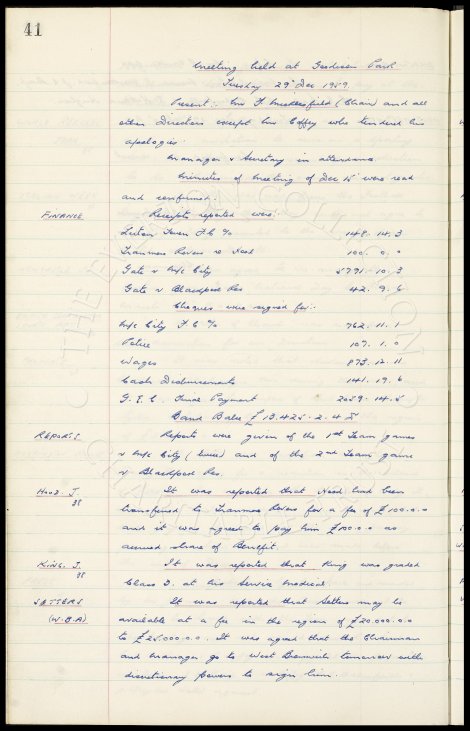 41
Meeting held at Goodison Park
Tuesday 29th Dec 1959.
Present:- Mr F Micklesfield (Chair) and all
other Directors except Mr Coffey who tendered his
apologies.
Manager & Secretary in attendance
Minutes of Meeting of Dec 15th were read
and confirmed.
FINANCE Receipts reported were:-
Luton Town F.C %
148. 14. 3
Tranmere Rovers re Hood
100. 0. 0
Gate v M/c City
5791. 10. 3
Gate v Blackpool Res
42. 9. 6
Cheques were signed for:-
M/c City F.C %
762. 11. 1
Police
107. 1. 0
Wages
873. 12. 11
Cash Disbursements
141. 19. 6
G. E. C. Payment
2059. 14. 5
Bank Balce £ 13.425. 2. 4
REPORTS Reports were given of the 1st Team games
v M/c City (twice) and of the 2nd Team game
v Blackpool Res.
HOOD. J It was reported that Hood had been
transferred to Tranmere Rovers for a fee of £100.0.0
and it was agreed to pay him £100.0.0 as
accrued share of Benefit.
KING. J. It was reported that King was graded
Class 3. at his Service Medical.
SETTERS It was reported that Setters may be
(W.B.A) available at a fee in the region of £20.000.0.0
to £25.000.0.0. It was agreed that the Chairman
and Manager go to West Bromwich tomorrow with
discretionary powers to sign him.
THE EVERTON COLLECTION
CHARITABLE TRUST